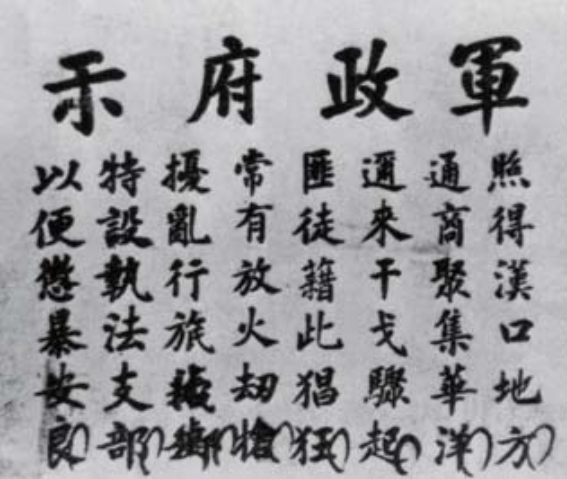 軍政府示
照得漢口地方
通商聚集華洋
邇來干戈驟起
匪徒籍此猖狂
常有放火刼搶
擾亂行旅
特設執法支部
以便懲暴安良